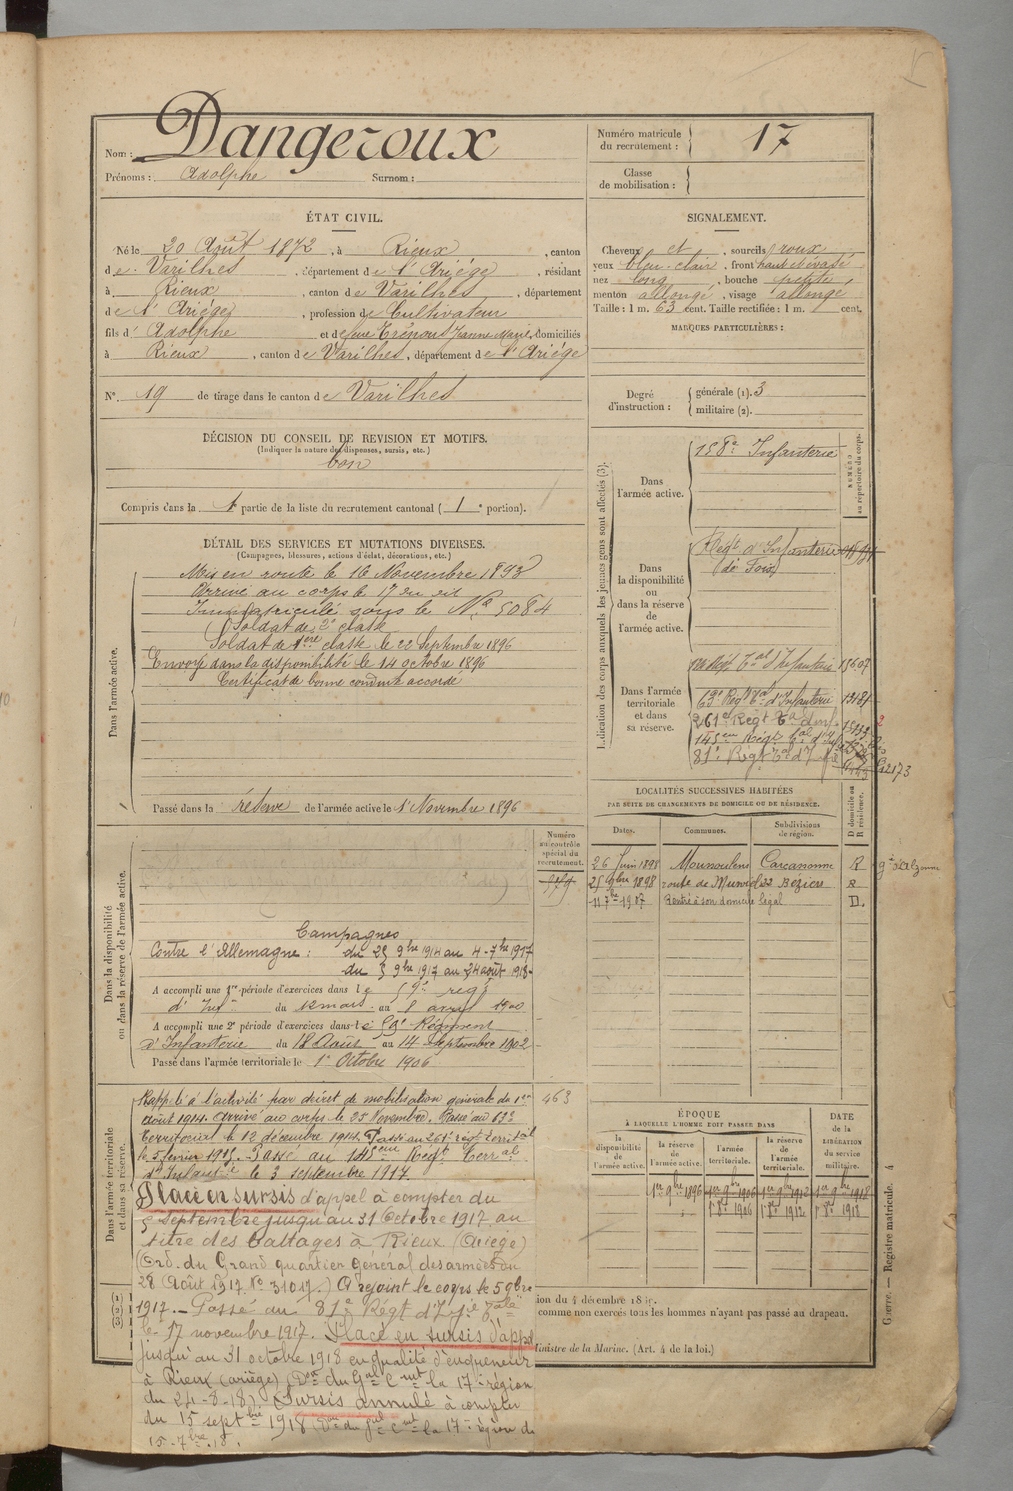 Nom : Dangeroux
Prénoms : Adolphe Surnom :
Numéro matricule du recrutement : 17
Classe de mobilisation :
ÉTAT CIVIL.
Né le 20 Août 1872, à Rieux, canton
de Varilhes, département de l'Ariège, résidant
à Rieux, canton de Varilhes, département
de l'Ariège, profession de Cultivateur
fils d'Adolphe et de Jeanne Marie, domiciliés
à Rieux, canton de Varilhes, département de l'Ariège
N° 19 de tirage dans le canton de Varilhes
DÉCISION DU CONSEIL DE REVISION ET MOTIFS.
(Indiquer la nature des dispenses, sursis, etc.)
bon
Compris dans la 1e partie de la liste du recrutement cantonal (1e portion).
SIGNALEMENT.
Cheveux et, sourcils roux
yeux bleu-clair, front haut et évasé
nez long, bouche petite,
menton allongé, visage allongé
Taille : 1 m. 63 cent. Taille rectifiée : 1 m. cent.
MARQUES PARTICULIÈRES :
Degré d'instruction : générale (1). 3
militaire (2).
DÉTAIL DES SERVICES ET MUTATIONS DIVERSES.
(Campagnes, blessures, actions d'éclat, décorations, etc.)
Dans l'armée active.
Mis en route le 16 Novembre 1893
Arrivé au corps le 17 du dit
Immatriculé sous le N° 5084
Soldat de 2e classe
Soldat de 1ère classe le 22 Septembre 1896
Envoyé dans la disponibilité le 14 octobre 1896
Certificat de bonne conduite accordé
Passé dans la réserve de l'armée active le 1er Novembre 1896
Indication des corps auxquels les jeunes gens sont affectés (3).
NUMÉRO au répertoire du corps.
Dans l'armée active.
158e Infanterie
Dans la disponibilité ou dans la réserve de l'armée active.
Régt d'Infanterie
(de Foix)
Dans l'armée territoriale et dans sa réserve.
Régt Tal d'Infanterie 15607
63e Régt Tal d'Infanterie 13181
261e Régt Tal d'Inf.
145eme Régt Tal d'Inf
81e Régt Tal d'Infie
12173
LOCALITÉS SUCCESSIVES HABITÉES
PAR SUITE DE CHANGEMENTS DE DOMICILE OU DE RÉSIDENCE.
Dates. Communes. Subdivisions de région. D domicile ou R résidence.
26 Juin 1898 Carcassonne R
25 9bre 1898 route de 32 Béziers R
11 7bre 1907 Rentré à son domicile légal D.
Numéro au contrôle spécial du recrutement.
Dans la disponibilité ou dans la réserve de l'armée active.
Campagnes
Contre l'Allemagne : du 25 9bre 1914 au 4-7bre 1917
du 5 9bre 1917 au 24 août 1918
A accompli une 1re période d'exercices dans le 59e regt
d'Infie du 12 mars au 8 avril 1900
A accompli une 2e période d'exercices dans le 59e Régiment
d'Infanterie du 18 Août au 14 Septembre 1902
Passé dans l'armée territoriale le 1er Octobre 1906
Dans l'armée territoriale et dans sa réserve.
Rappelé à l'activité par décret de mobilisation générale du 1er 463
Août 1914. Arrivé au corps le 25 Novembre. Passé au 63e
territorial le 12 décembre 1914. Passé au 261e régt territal
le 5 février 1915. Passé au 145eme Régt Terral
d'Infantie le 3 septembre 1917.
Placé en sursis d'appel à compter du
5 Septembre jusqu'au 31 Octobre 1917 au
titre des battages à Rieux (Ariège)
(Ord. du Grand quartier général des armées du
28 Août 1917 No 31017.) A rejoint le corps le 5 9bre
1917. – Passé au 81e Régt d'Infie Tale
le 17 novembre 1917. Placé en sursis d'appel
jusqu'au 31 octobre 1918 en qualité d'engreneur
à Rieux (Ariège) (Don du Gal Cmt la 17e région
du 24-8-18). Sursis annulé à compter
du 15 septbre 1918 (Don du Gal Cmt la 17e région du
15-7bre.18.
ÉPOQUE
À LAQUELLE L'HOMME DOIT PASSER DANS
la disponibilité de l'armée active. la réserve de l'armée active. l'armée territoriale. la réserve de l'armée territoriale.
DATE de la LIBÉRATION du service militaire.
1er 9bre 1896 1er 9bre 1906 1er 9bre 1912 1er 9bre 1918
1er 8bre 1906 1er 8bre 1912 1er 8bre 1918
comme non exercés tous les hommes n'ayant pas passé au drapeau.
Ministre de la Marine. (Art. 4 de la loi.)
Guerre. — Registre matricule. 4